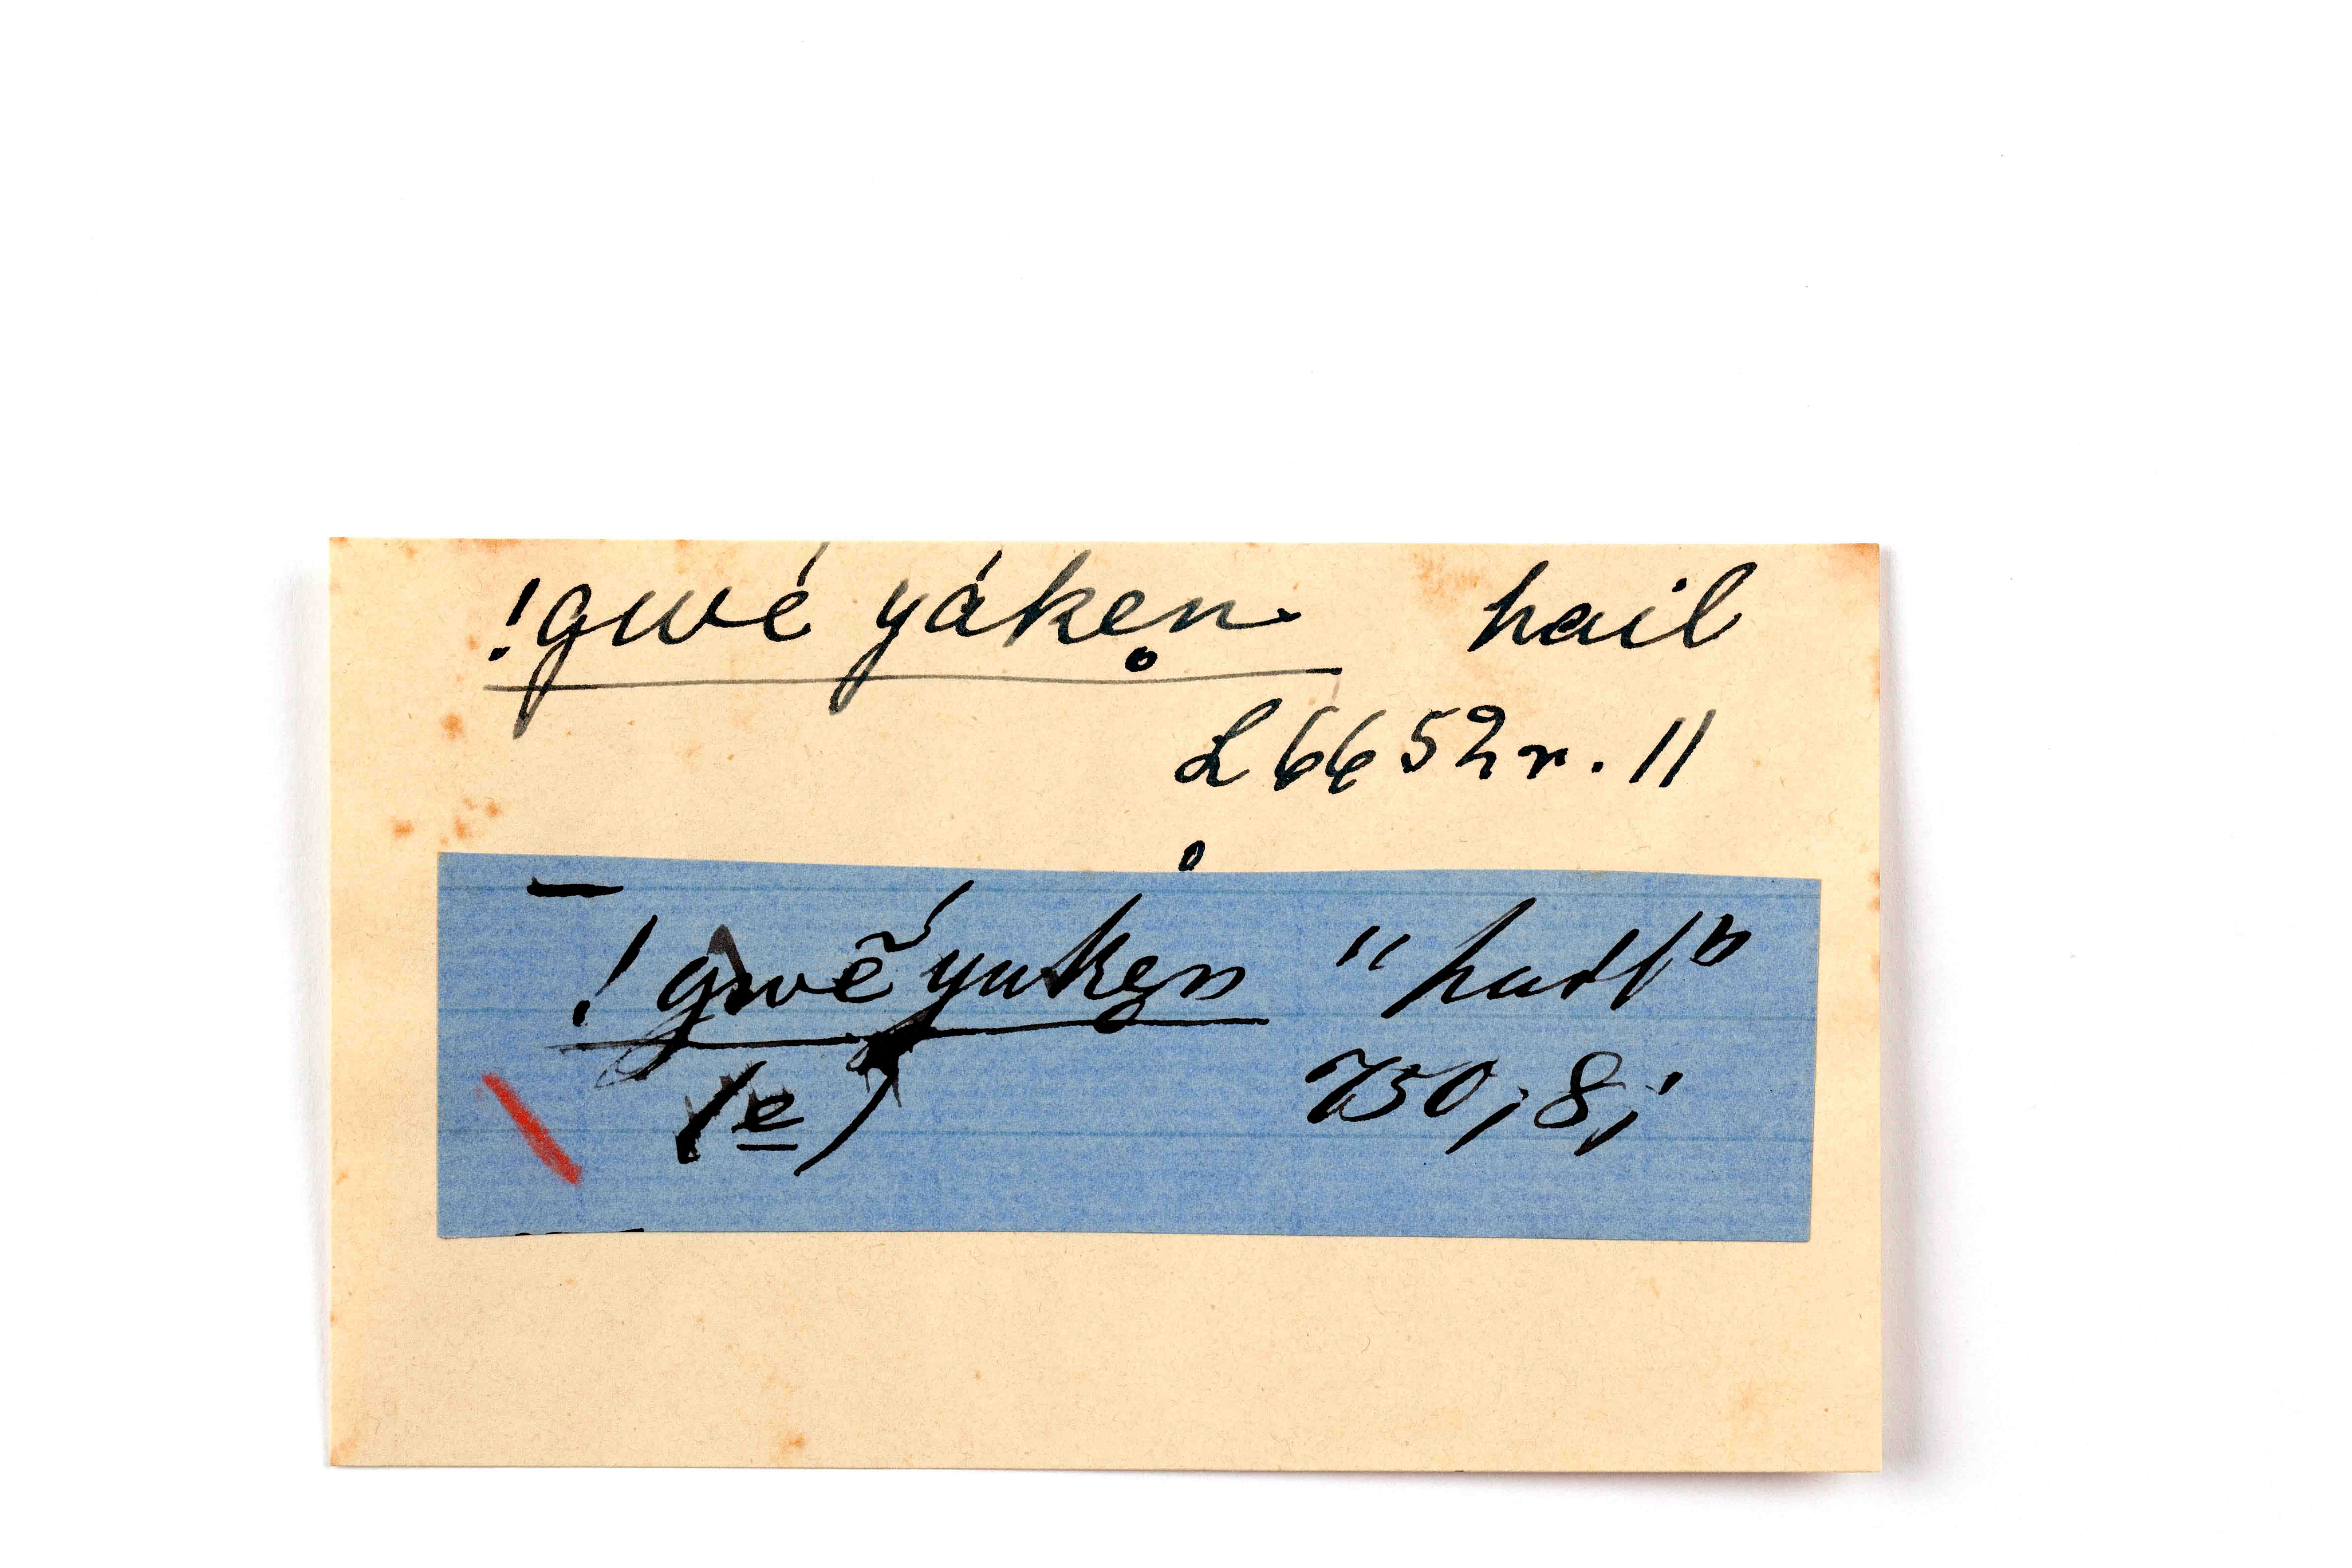 !gwé yáken̥ hail
L 6652 r. 11
!gwẽ́yaken̥ "hail"
(e) 750, 8;